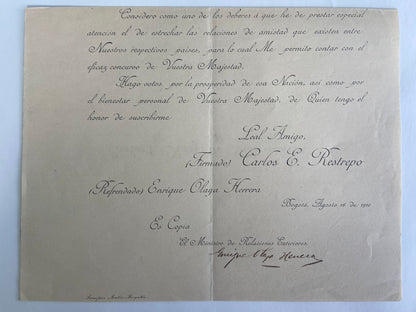 Considero como uno de los deberes á que he de prestar especial
atención el de estrechar las relaciones de amistad que existen entre
Nuestros respectivos países, para lo cual Me permito contar con el
eficaz concurso de Vuestra Majestad.
Hago votos por la prosperidad de esa Nación, así como por
el bienestar personal de Vuestra Majestad, de Quien tengo el
honor de suscribirme
Leal Amigo,
(Firmado) Carlos E. Restrepo
(Refrendado) Enrique Olaya Herrera
Bogotá, Agosto 16 de 1910
Es Copia
El Ministro de Relaciones Exteriores,
Enrique Olaya Herrera